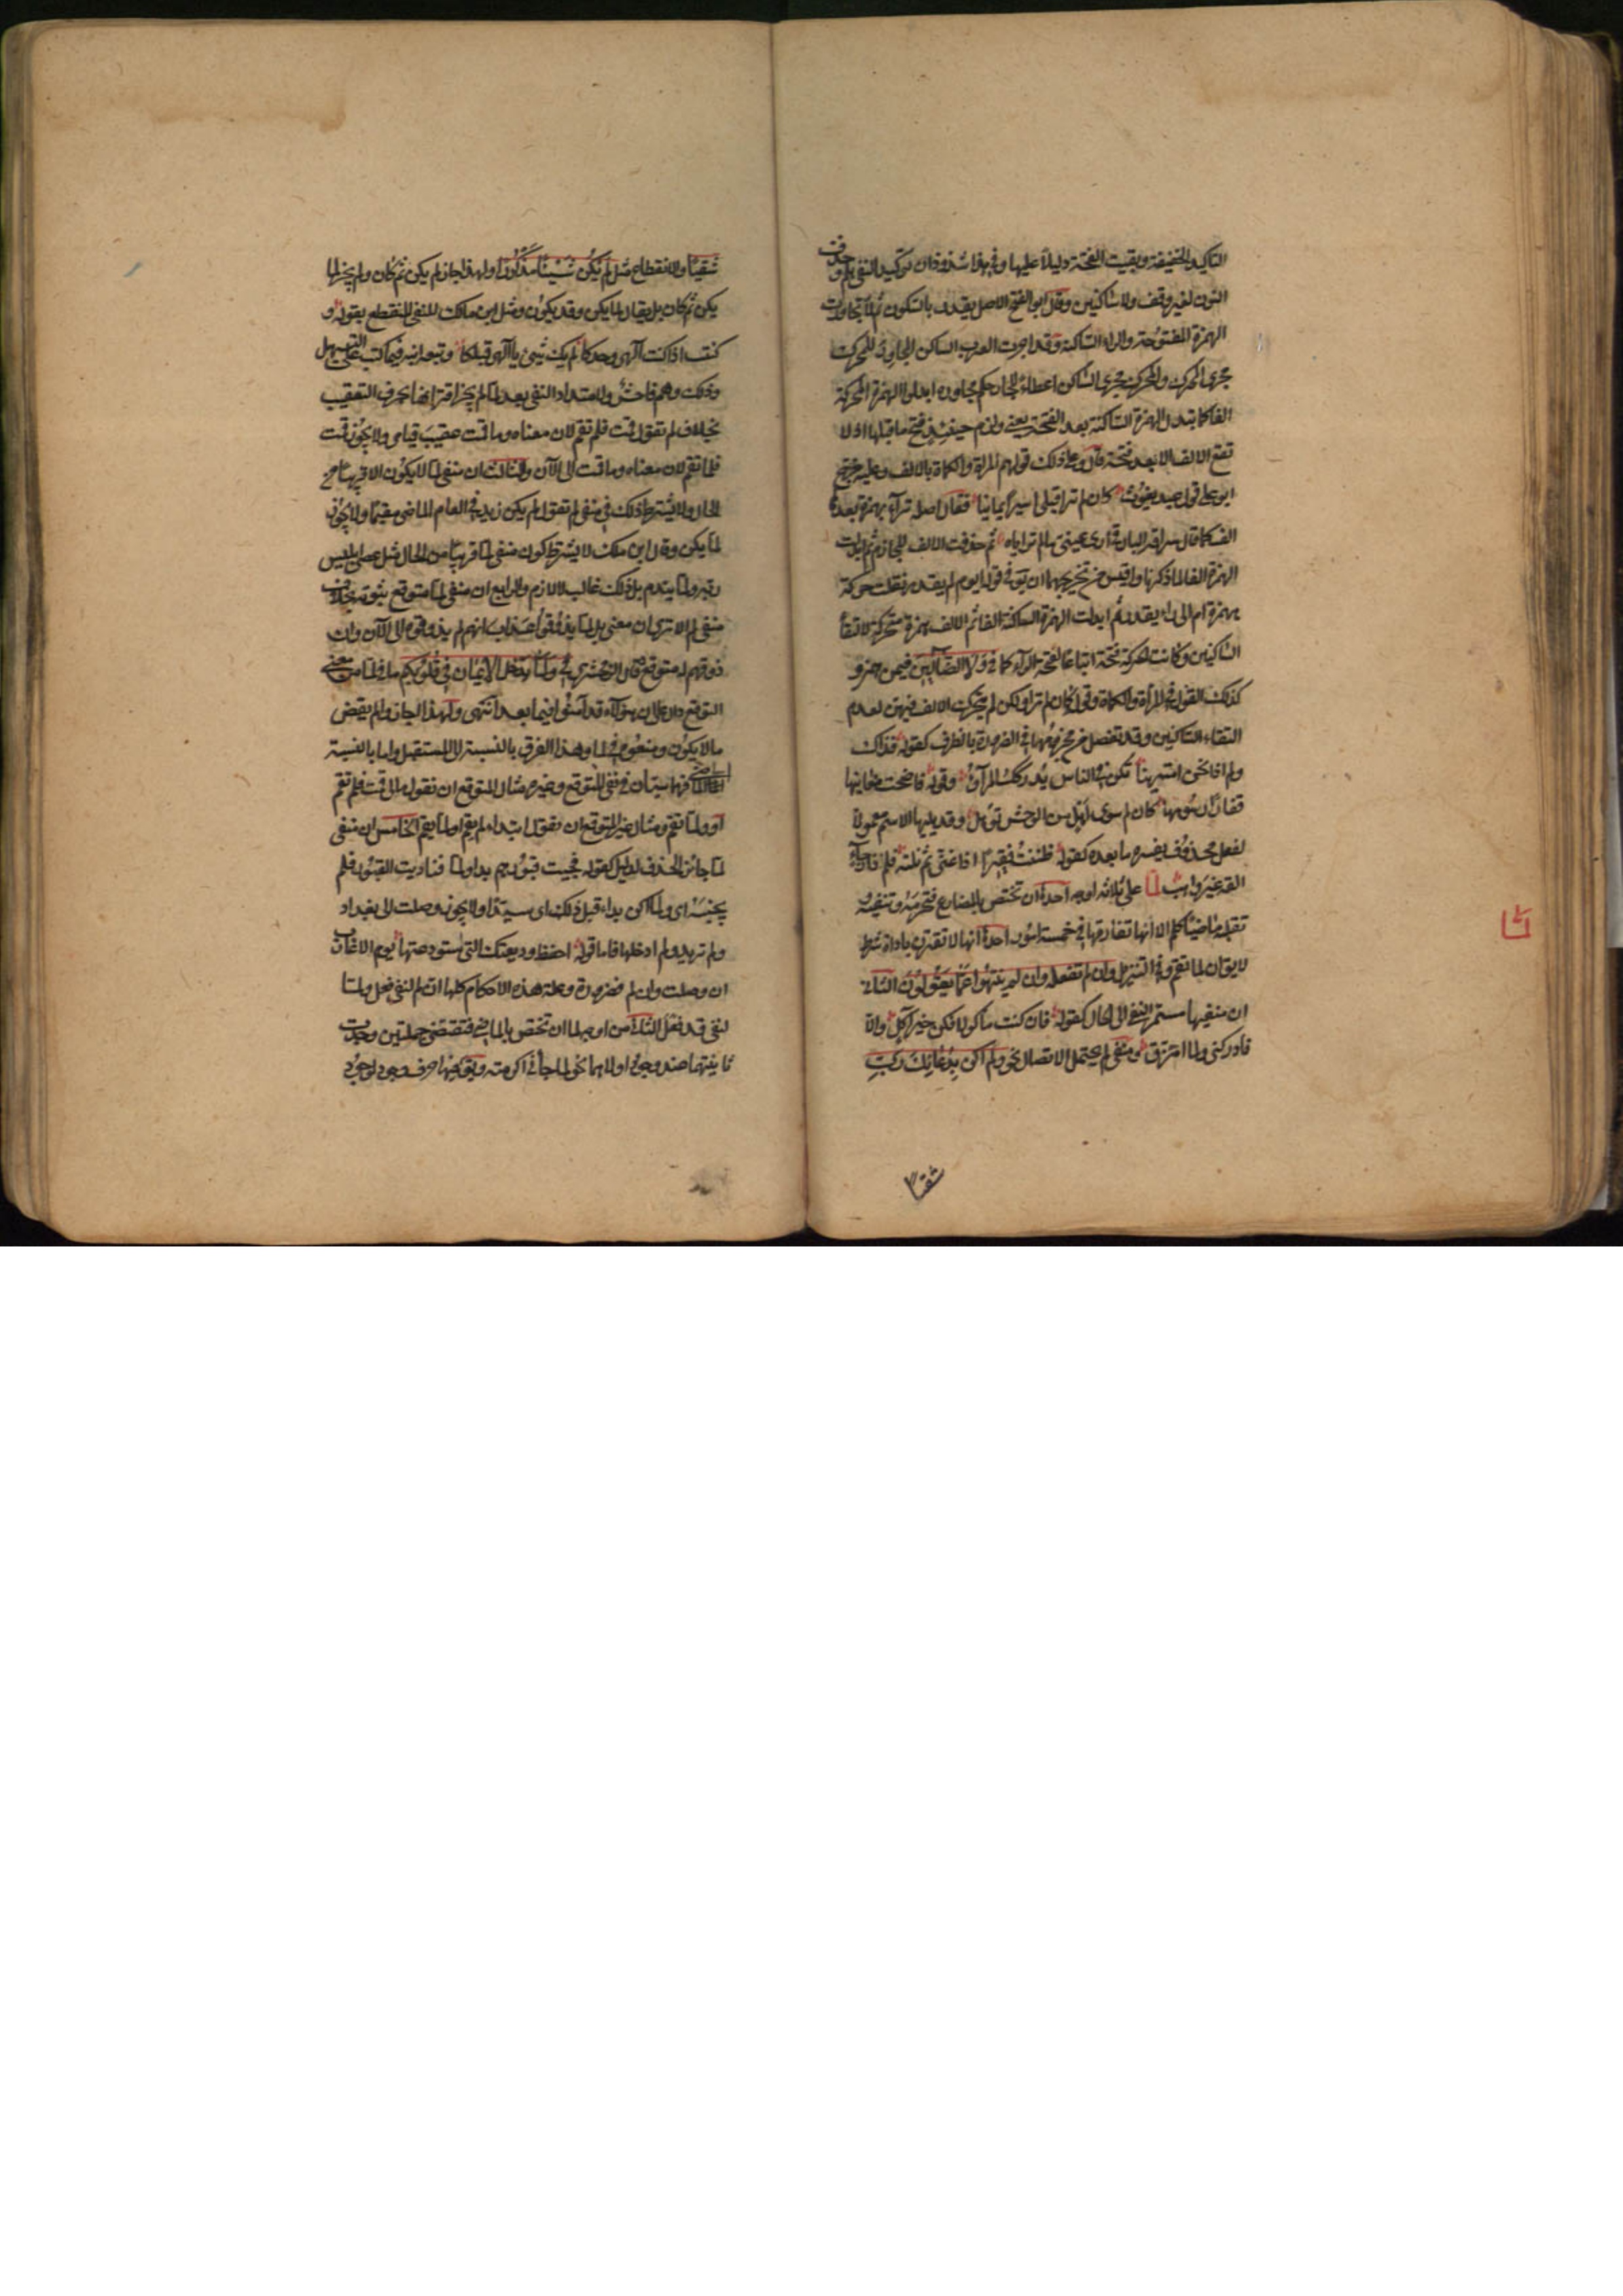 التاكيد الخفيفة وبقيت الفتحة دليلا عليها وفي هذا شذوذان توكيد المنفي بلم وحذف
النون لغير وقف ولا ساكنين وقال ابو الفتح الاصل يقدر بالسكون ثم لما تجاورت
الهمزة المفتوحة والراء الساكنة وقد اجرت العرب الساكن المجاور للمحرك
مجرى المحرك والمحرك مجرى الساكن اعطاء للجار حكم مجاوره ابدلوا الهمزة المحركة
الفا كما تبدل الهمزة الساكنة بعد الفتحة يعني ولزم حينئذ فتح ما قبلها اذ لا
تقع الالف الا بعد فتحة قال وعلى ذلك قولهم المراة والكماة بالالف وعليه خرج
ابو علي قول عبد يغوث كان لم ترا قبلي اسيرا يمانيا فقال اصله ترآى بهمزة بعدها
الف كما قال سراقة البارقي ارى عيني ما لم تراياه ثم حذفت الالف للجازم ثم ابدلت
الهمزة الفا لما ذكرنا واقيس من تخريجهما ان يق في قوله ايوم لم يقدر نقلت حركة
همزة ام الى راء يقدر ثم ابدلت الهمزة الساكنة الفا ثم الالف همزة متحركة لالتقاء
الساكنين وكانت الحركة فتحة اتباعا لفتحة الراء كما في ولا الضالين فيمن همزه و
كذلك القول في المراة والكماة وقوله كان لم ترا ولكن لم تحرك الالف فيهن لعدم
التقاء الساكنين وقد تفصل من مجزومها في الضرورة بالظرف كقوله فذاك
ولم اذا نحن امترينا تكن في الناس يدركك المراء وقوله فاضحت مغانيها
قفارا رسومها كان لم سوى اهل من الوحش توهل وقد يليها الاسم معمولا
لفعل محذوف يفسره ما بعده كقوله ظننت فقيرا ذا غنى ثم نلته فلم ذا رجاء
القه غير واهب لما على ثلاثة اوجه احدها ان تختص بالمضارع فتجزمه وتنفيه و
تقلبه ماضيا كلم الا انها تفارقها في خمسة امور احدها انها لا تقترن باداة شرط
لا يقال ان لما تقم وفي التنزيل وان لم تفعل وان لم ينتهوا عما يقولون الثاني
ان منفيها مستمر النفي الى الحال كقوله فان كنت ماكولا فكن خير آكل والا
فادركني ولما امزق ومنفي لم يحتمل الاتصال نحو ولم اكن بدعائك رب
شقيا
لما
شقيا والانقطاع مثل لم يكن شيئا مذكورا ولهذا جاز لم يكن ثم كان ولم يجز لما
يكن ثم كان بل يقال لما يكن وقد يكون ومثل ابن مالك للنفي المنقطع بقوله و
كنت اذ كنت الهي وحدكا لم يك شيئ يا الهي قبلكا وتبعه ابنه فيما كتب على التسهيل
وذلك وهم فاحش ولامتداد النفي بعد لما لم يجز اقترانها بحرف التعقيب
بخلاف لم تقول قمت فلم تقم لان معناه وما قمت عقيب قيامي ولا يجوز قمت
فلما تقم لان معناه وما قمت الى الآن والثالث ان منفي لما لا يكون الا قريبا من
الحال ولا يشترط ذلك في منفي لم تقول لم يكن زيد في العام الماضي مقيما ولا يجوز
لما يكن وقال ابن ملك لا يشترط كون منفي لما قريبا من الحال مثل عصى ابليس
ربه ولما يندم بل ذلك غالب لا لازم والرابع ان منفي لما متوقع ثبوته بخلاف
منفي لم الا ترى ان معنى بل لما يذوقوا عذاب انهم لم يذوقوه الى الآن وان
ذوقهم له متوقع قال الزمخشري في ولما يدخل الايمان في قلوبكم ما في لما من معنى
التوقع دال على ان هؤلآء قد آمنوا فيما بعد انتهى ولهذا اجازوا لم يقض
ما لا يكون ومنعوه في لما وهذا الفرق بالنسبة الى المستقبل واما بالنسبة
الى الماضي فهما سيان في نفي المتوقع وغيره مثال المتوقع ان تقول مالي قمت فلم تقم
او ولما تقم ومثال غير المتوقع ان تقول ابتداء لم يقم او لما يقم الخامس ان منفي
لما جائز الحذف لدليل كقوله فجيت قبورهم بدا ولما فناديت القبور فلم
يجبنه اي ولما اكن بداء قبل ذلك اي سيدا ولا يجوز وصلت الى بغداد
ولم تريد ولم ادخلها فاما قوله احفظ وديعتك التي استودعتها يوم الاعازب
ان وصلت وان لم فضرورة وعلة هذه الاحكام كلها ان لم لنفي فعل ولما
لنفي قد فعل الثاني من اوجه لما ان تختص بالماضي فتقتضي جملتين وجدت
ثانيتهما عند وجود اولاهما نحو لما جاءني اكرمته ويق فيها حرف وجود لوجود